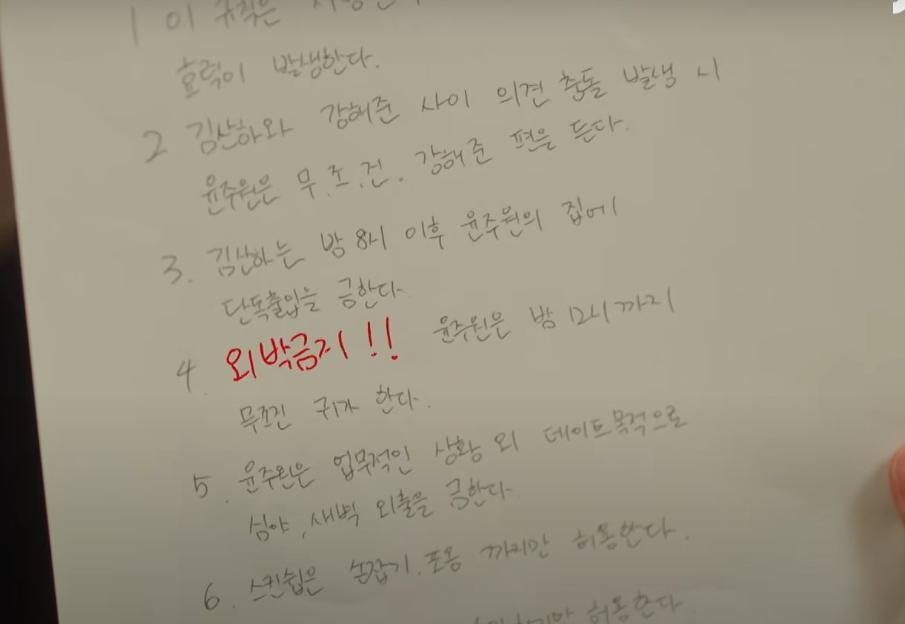 1 이 규칙은
효력이 발생한다.
2 김산하와 강해준 사이 의견 충돌 발생 시
윤주원은 무.조.건. 강해준 편을 든다.
3. 김산하는 밤 8시 이후 윤주원의 집에
단독출입을 금한다.
4. 외박금지!! 윤주원은 밤 12시까지
무조건 귀가 한다.
5. 윤주원은 업무적인 상황 외 데이트목적으로
심야, 새벽 외출을 금한다.
6. 스킨쉽은 손잡기. 포옹 까지만 허용한다.
허용한다